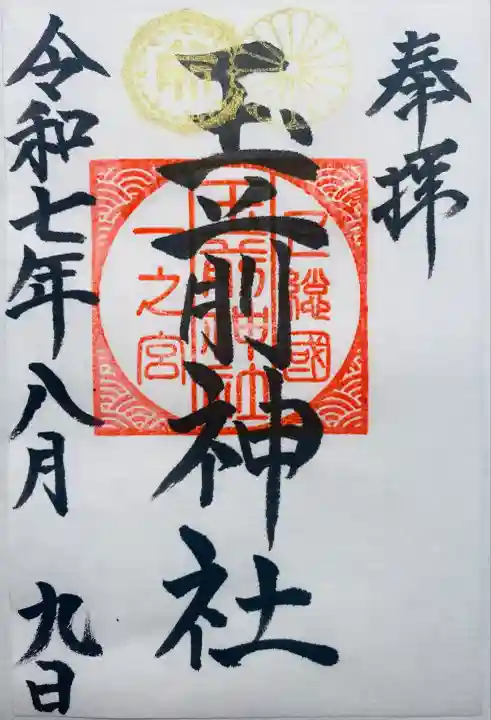 奉拝
上總國
玉前神社
一之宮
玉前神社
令和七年八月九日